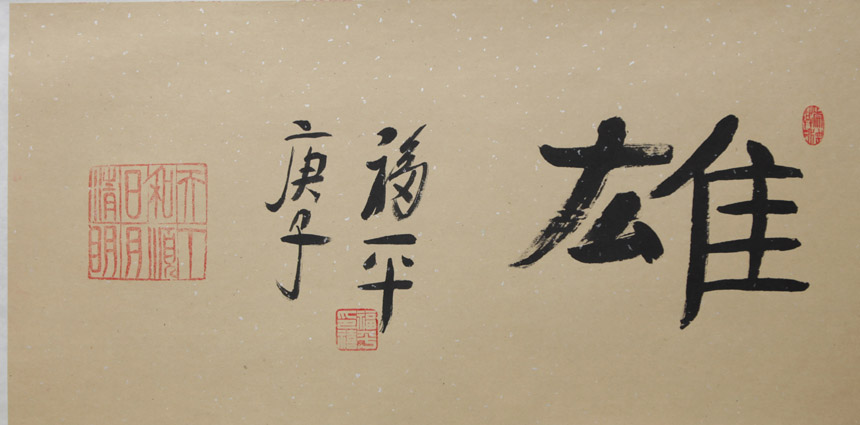 雄
福平
庚子
天下
和順
日月
清明